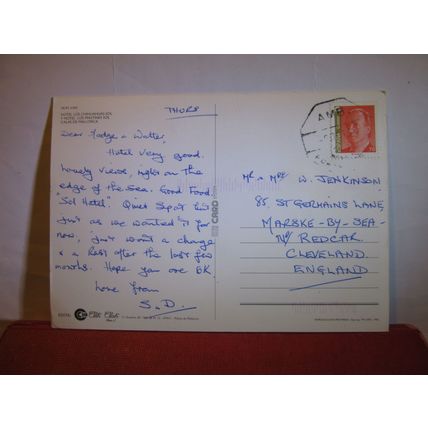 HOTEL LOS CHIHUAHUAS
Y HOTEL LOS MASTINES
CALAS DE MALLORCA
THURS
Dear Madge & Walter,
Hotel very good.
Lovely views, right on the
edge of the Sea. Good Food.
"Sol Hotel". Quiet Spot but
just as we wanted it for
now, just want a change
& a Rest after the last few
months. Hope you are OK
Love from
S. D.
AMB
MR & MRS W. JENKINSON,
85, ST GERMAINS LANE,
MARSKE-BY-SEA
Nr REDCAR.
CLEVELAND.
ENGLAND
CARD